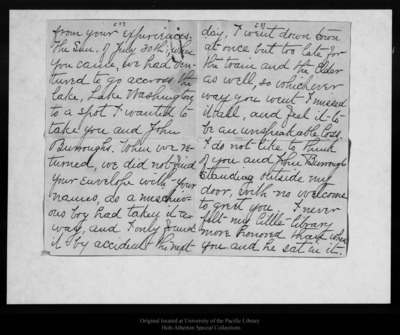 (2)
from your experiences.
The Sun. of July 30th, when
you came, we had ven-
tured to go accross the
lake, Lake Washington
to a spot I wanted to
take you and John
Burroughs. When we re-
turned, we did not find
your envelope with your
names, as a mischiev-
ous boy had taken it a-
way, and I only found
it by accident the next
day, I went down town
at once but too late for
the train and the Elder
as well, so whichever
way you went I missed
it all, and feel it to
be an unspeakable loss.
I do not like to think
of you and John Burroughs
standing outside my
door, with no welcome
to greet you. I never
felt my little library
more honored than when
you and he sat in it.
Original located at University of the Pacific Library
Holt-Atherton Special Collections